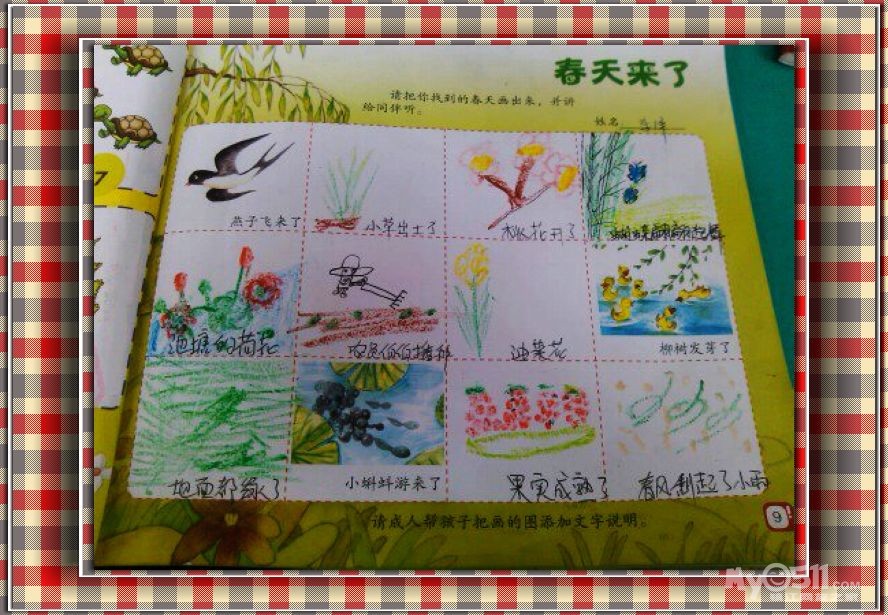 7
春天来了
请把你找到的春天画出来，并讲
给同伴听。
姓名
燕子飞来了
小草出土了
桃花开了
池塘的荷花
农民伯伯播种
油菜花
柳树发芽了
地面都绿了
小蝌蚪游来了
果实成熟了
春风刮起了小雨
请成人帮孩子把画的图添加文字说明。
9
My0511.COM